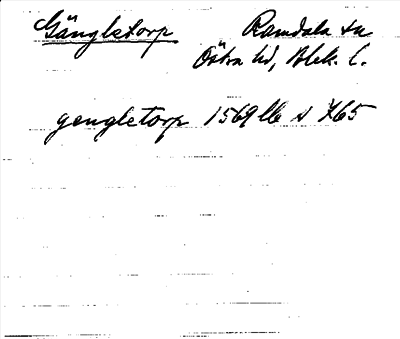 Gängletorp Ramdala sn
Östra hd, Blek. l.
gengletorp 1569 lb s 765